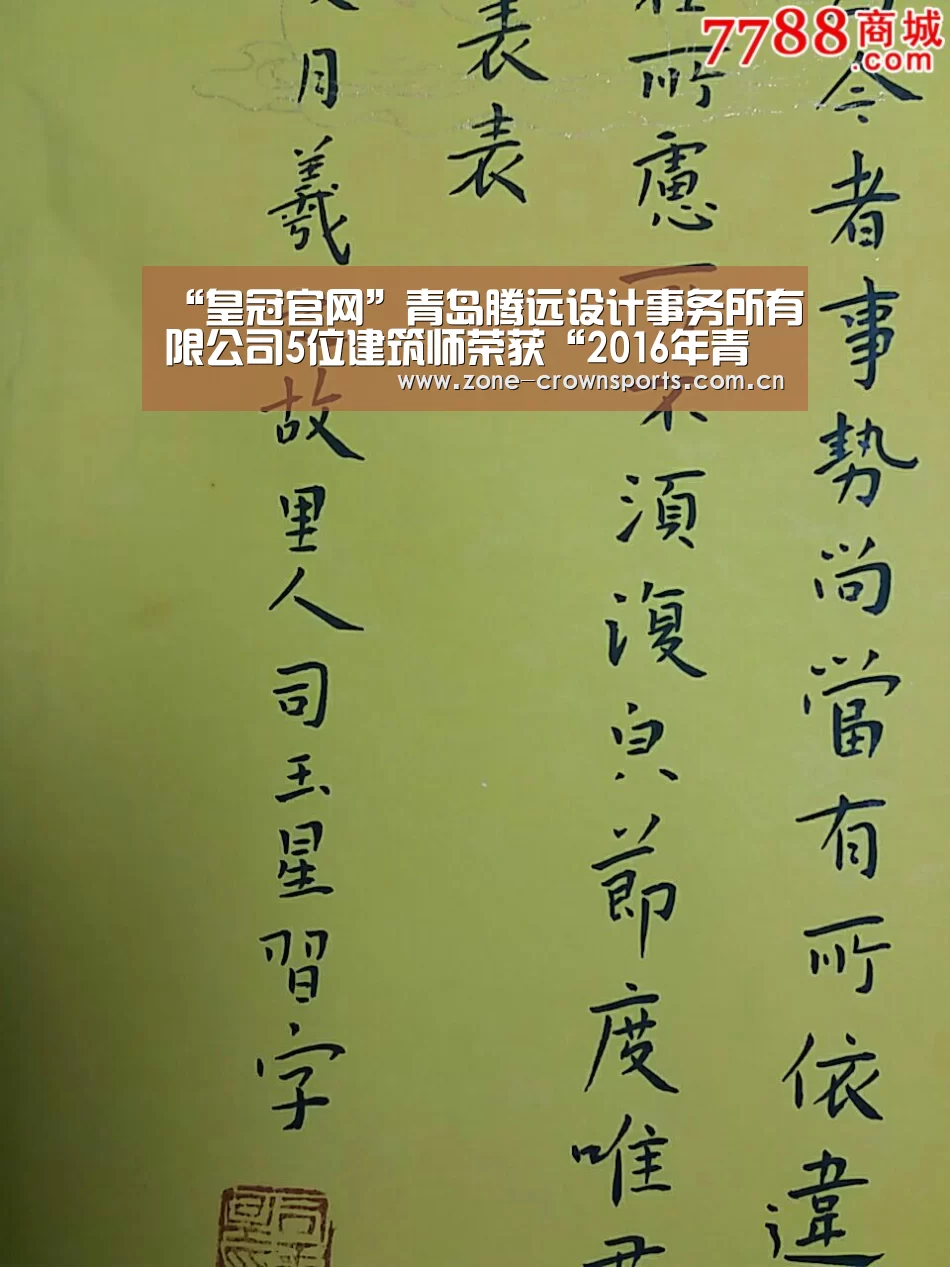 7788商城
.com
今者事勢尚當有所依違
所慮
不須復貞節度唯君
表表
月羲
故里人司玉星習字
“皇冠官网”青岛腾远设计事务所有
限公司5位建筑师荣获“2016年青
www.zone-crownsports.com.cn